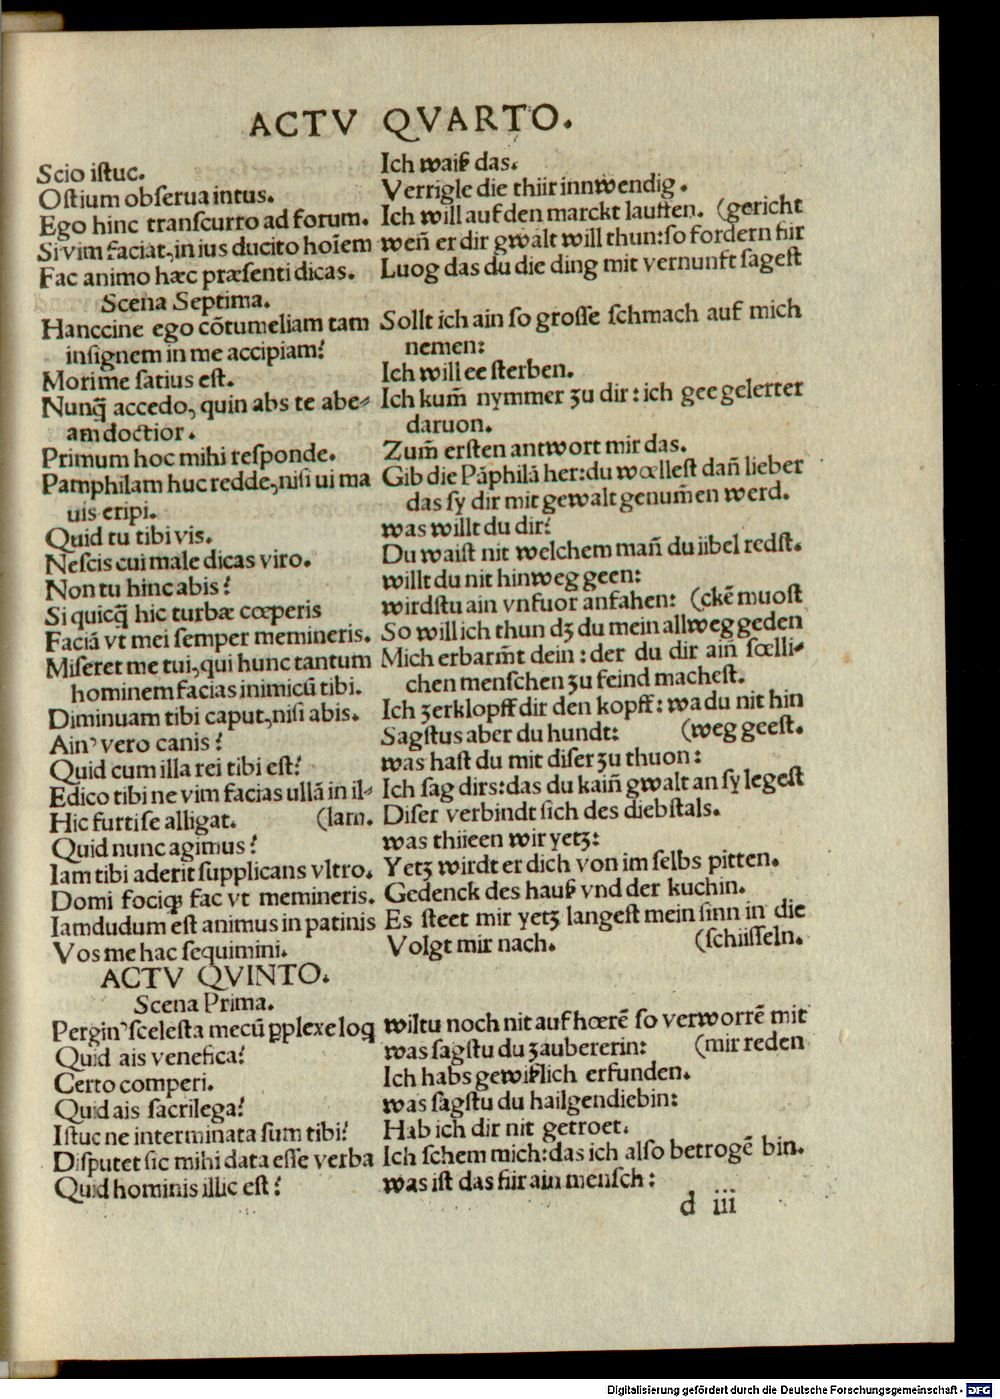 ACTV QVARTO.
Scio iſtuc. Ich waiß das.
Oſtium obſerua intus. Verrigle die thür innwendig.
Ego hinc tranſcurro ad forum. Ich will auf den marckt lauffen. (gericht
Si vim faciat, in ius ducito hoīem weñ er dir gwalt will thun: ſo fordern für
Fac animo hæc præſenti dicas. Luog das du die ding mit vernunft ſageſt
Scena Septima.
Hanccine ego cõtumeliam tam Sollt ich ain ſo groſſe ſchmach auf mich
inſignem in me accipiam? nemen:
Mori me ſatius eſt. Ich will ee ſterben.
Nunq̃ accedo, quin abs te abe⸗ Ich kum̃ nymmer zu dir: ich gee gelerter
am doctior. daruon.
Primum hoc mihi reſponde. Zum̃ erſten antwort mir das.
Pamphilam huc redde, niſi ui ma Gib die Pãphilã her: du wœlleſt dañ lieber
uis eripi. das ſy dir mit gewalt genum̃en werd.
Quid tu tibi vis. was willt du dir?
Neſcis cui male dicas viro. Du waiſt nit welchem mañ du übel redſt.
Non tu hinc abis? willt du nit hinweg geen:
Si quicq̃ hic turbæ cœperis wirdſtu ain vnfuor anfahen: (ckẽ muoſt
Faciã vt mei ſemper memineris. So will ich thun dʒ du mein allweg geden
Miſeret me tui, qui hunc tantum Mich erbarm̃t dein: der du dir aiñ ſœlli⸗
hominem facias inimicũ tibi. chen menſchen zu feind macheſt.
Diminuam tibi caput, niſi abis. Ich zerklopff dir den kopff: wa du nit hin
Ain' vero canis? Sagſtus aber du hundt: (weg geeſt.
Quid cum illa rei tibi eſt? was haſt du mit diſer zu thuon:
Edico tibi ne vim facias ullã in il⸗ Ich ſag dirs: das du kaiñ gwalt an ſy legeſt
Hic furti ſe alligat. (lam. Diſer verbindt ſich des diebſtals.
Quid nunc agimus? was thüeen wir yetz:
Iam tibi aderit ſupplicans vltro. Yetz wirdt er dich von im ſelbs pitten.
Domi fociq; fac vt memineris. Gedenck des hauß vnd der kuchin.
Iamdudum eſt animus in patinis Es ſteet mir yetz langeſt mein ſinn in die
Vos me hac ſequimini. Volgt mir nach. (ſchüſſeln.
ACTV QVINTO.
Scena Prima.
Pergin' ſceleſta mecũ ꝑplexe loq wiltu noch nit aufhœrẽ ſo verworrẽ mit
Quid ais venefica? was ſagſtu du zaubererin: (mir reden
Certo comperi. Ich habs gewißlich erfunden.
Quid ais ſacrilega? was ſagſtu du hailgendiebin:
Iſtuc ne interminata ſum tibi? Hab ich dir nit getroet.
Diſputet ſic mihi data eſſe verba Ich ſchem mich: das ich alſo betrogẽ bin.
Quid hominis illic eſt? was iſt das für ain menſch:
d iii
Digitalisierung gefördert durch die Deutsche Forschungsgemeinschaft - DFG